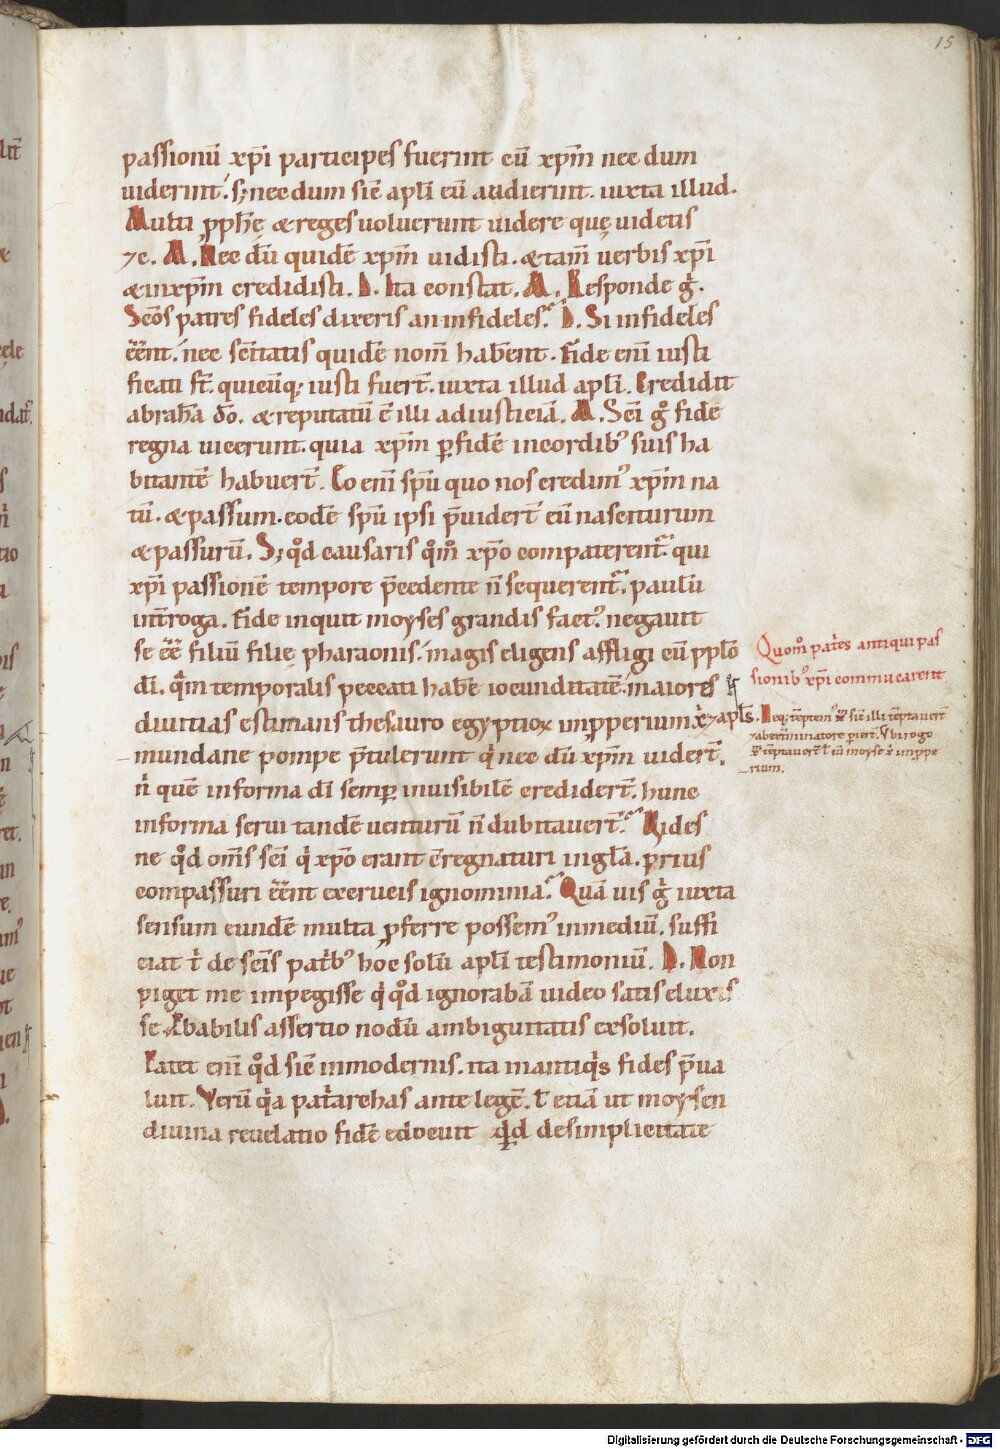 15
passionū xp̄i participes fuerint cū xp̄m nec dum
uiderint. s; nec dum sic̄ apl̄i eū audierint. iuxta illud.
Multi ꝓph̄ę & reges uoluerunt uidere quę uidetis
⁊c. M. Nec dū quidē xp̄m uidisti. & tam̄ uerbis xp̄i
& in xp̄m credidisti. D. Ita constat. M. Responde g̊.
Sc̄os patres fideles dixeris an infideles. D. Si infideles
ēēnt. nec sc̄itatis quidē nom̄ hab̄ent. Fide eni̅ iusti
ficati st̄. quicūq; iusti fuer̄t. iuxta illud apl̄i. Credidit
abrahā dō. & reputatū ē illi ad iusticiā. M. Sc̄i g̊ fidē
regna uicerunt. quia xp̄m ꝑ fidē in cordib᾽ suis ha
bitantē habuer̄t. Eo eni̅ sp̄u quo nos credim᾽ xp̄m na
tū. & passum. eodē sp̄u ipsi p̄uider̄t eū nasciturum
& passurū. S; qd̊ causaris qm̊ xp̄o compaterent̄. qui
xp̄i passionē tempore p̄cedente n̄ sequerent̄. paulū
int̄roga. Fide inquit moyses grandis fact᾽. negauit
se ēē filiū filię pharaonis. magis eligens affligi cū ppl̄o
dī. q̄m temporalis peccati hab̄e iocunditatē. maiores
diuitias estimans thesauro egyptioꝝ inꝓperium xp̄i. ⁊ apl̄s.
mundane pompe p̄tulerunt qi nec dū xp̄m uider̄t.
n̄ quē in forma dī semꝑ inuisibilē credider̄t. hunc
in forma serui tandē uenturū n̄ dubitauer̄t. Vides
ne qd̊ om̄s sc̄i qi xp̄o erant c̄regnaturi in gl̄a. prius
compassuri ēēnt exerucis ignominia. Quā uis g̊ iuxta
sensum eundē multa ꝓferre possem᾽ in mediū. suffi
ciat t̄ de sc̄is patrib᾽ hoc solū apl̄i testimoniū. D. Non
piget me impegisse qi qd̊ ignorabā uideo satis eluxis
se. babilis assertio nodū ambiguitatis exsoluit.
Patet eni̅ qd̊ sic̄ in modernis. ita in antiqis fides p̄ua
luit. Verū qa patriarchas ante legē. t̄ etiā ut moysen
diuina reuelatio fidē edocuit qid de simplicitate
Quom̊ patres antiqui pas
sionib᾽ xp̄i commucarent
Neq; tēptem᾽ xp̄m sic̄ illi tēptauer̄t
⁊ ab exterminatore pier̄t. Vbi rogo
xp̄m tēptauer̄t
rium.
Digitalisierung gefördert durch die Deutsche Forschungsgemeinschaft - DFG